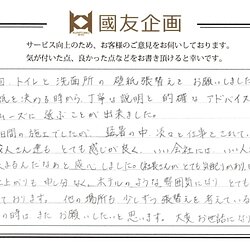 國友企画
サービス向上のため、お客様のご意見をお伺いしております。
気が付いた点、良かった点などをお書き頂けると幸いです。
回、トイレと洗面所の壁紙張替えをお願いしました
紙を決める時から丁寧な説明と的確なアドバイス
ムーズに選ぶことが出来ました。
日間の施工でしたが、猛暑の中、淡々と仕事をこなす
職人さん達もとても感じが良く、いい会社には、いい人
るもんだなぁと感心しました。(社長さんがとても気配りの
上がりも申し分なく、ホテルのような雰囲気になり とても
ております。他の場所も少しずつ張替えを考えている
の時はまたお願いしたいと思います。大変お世話になり